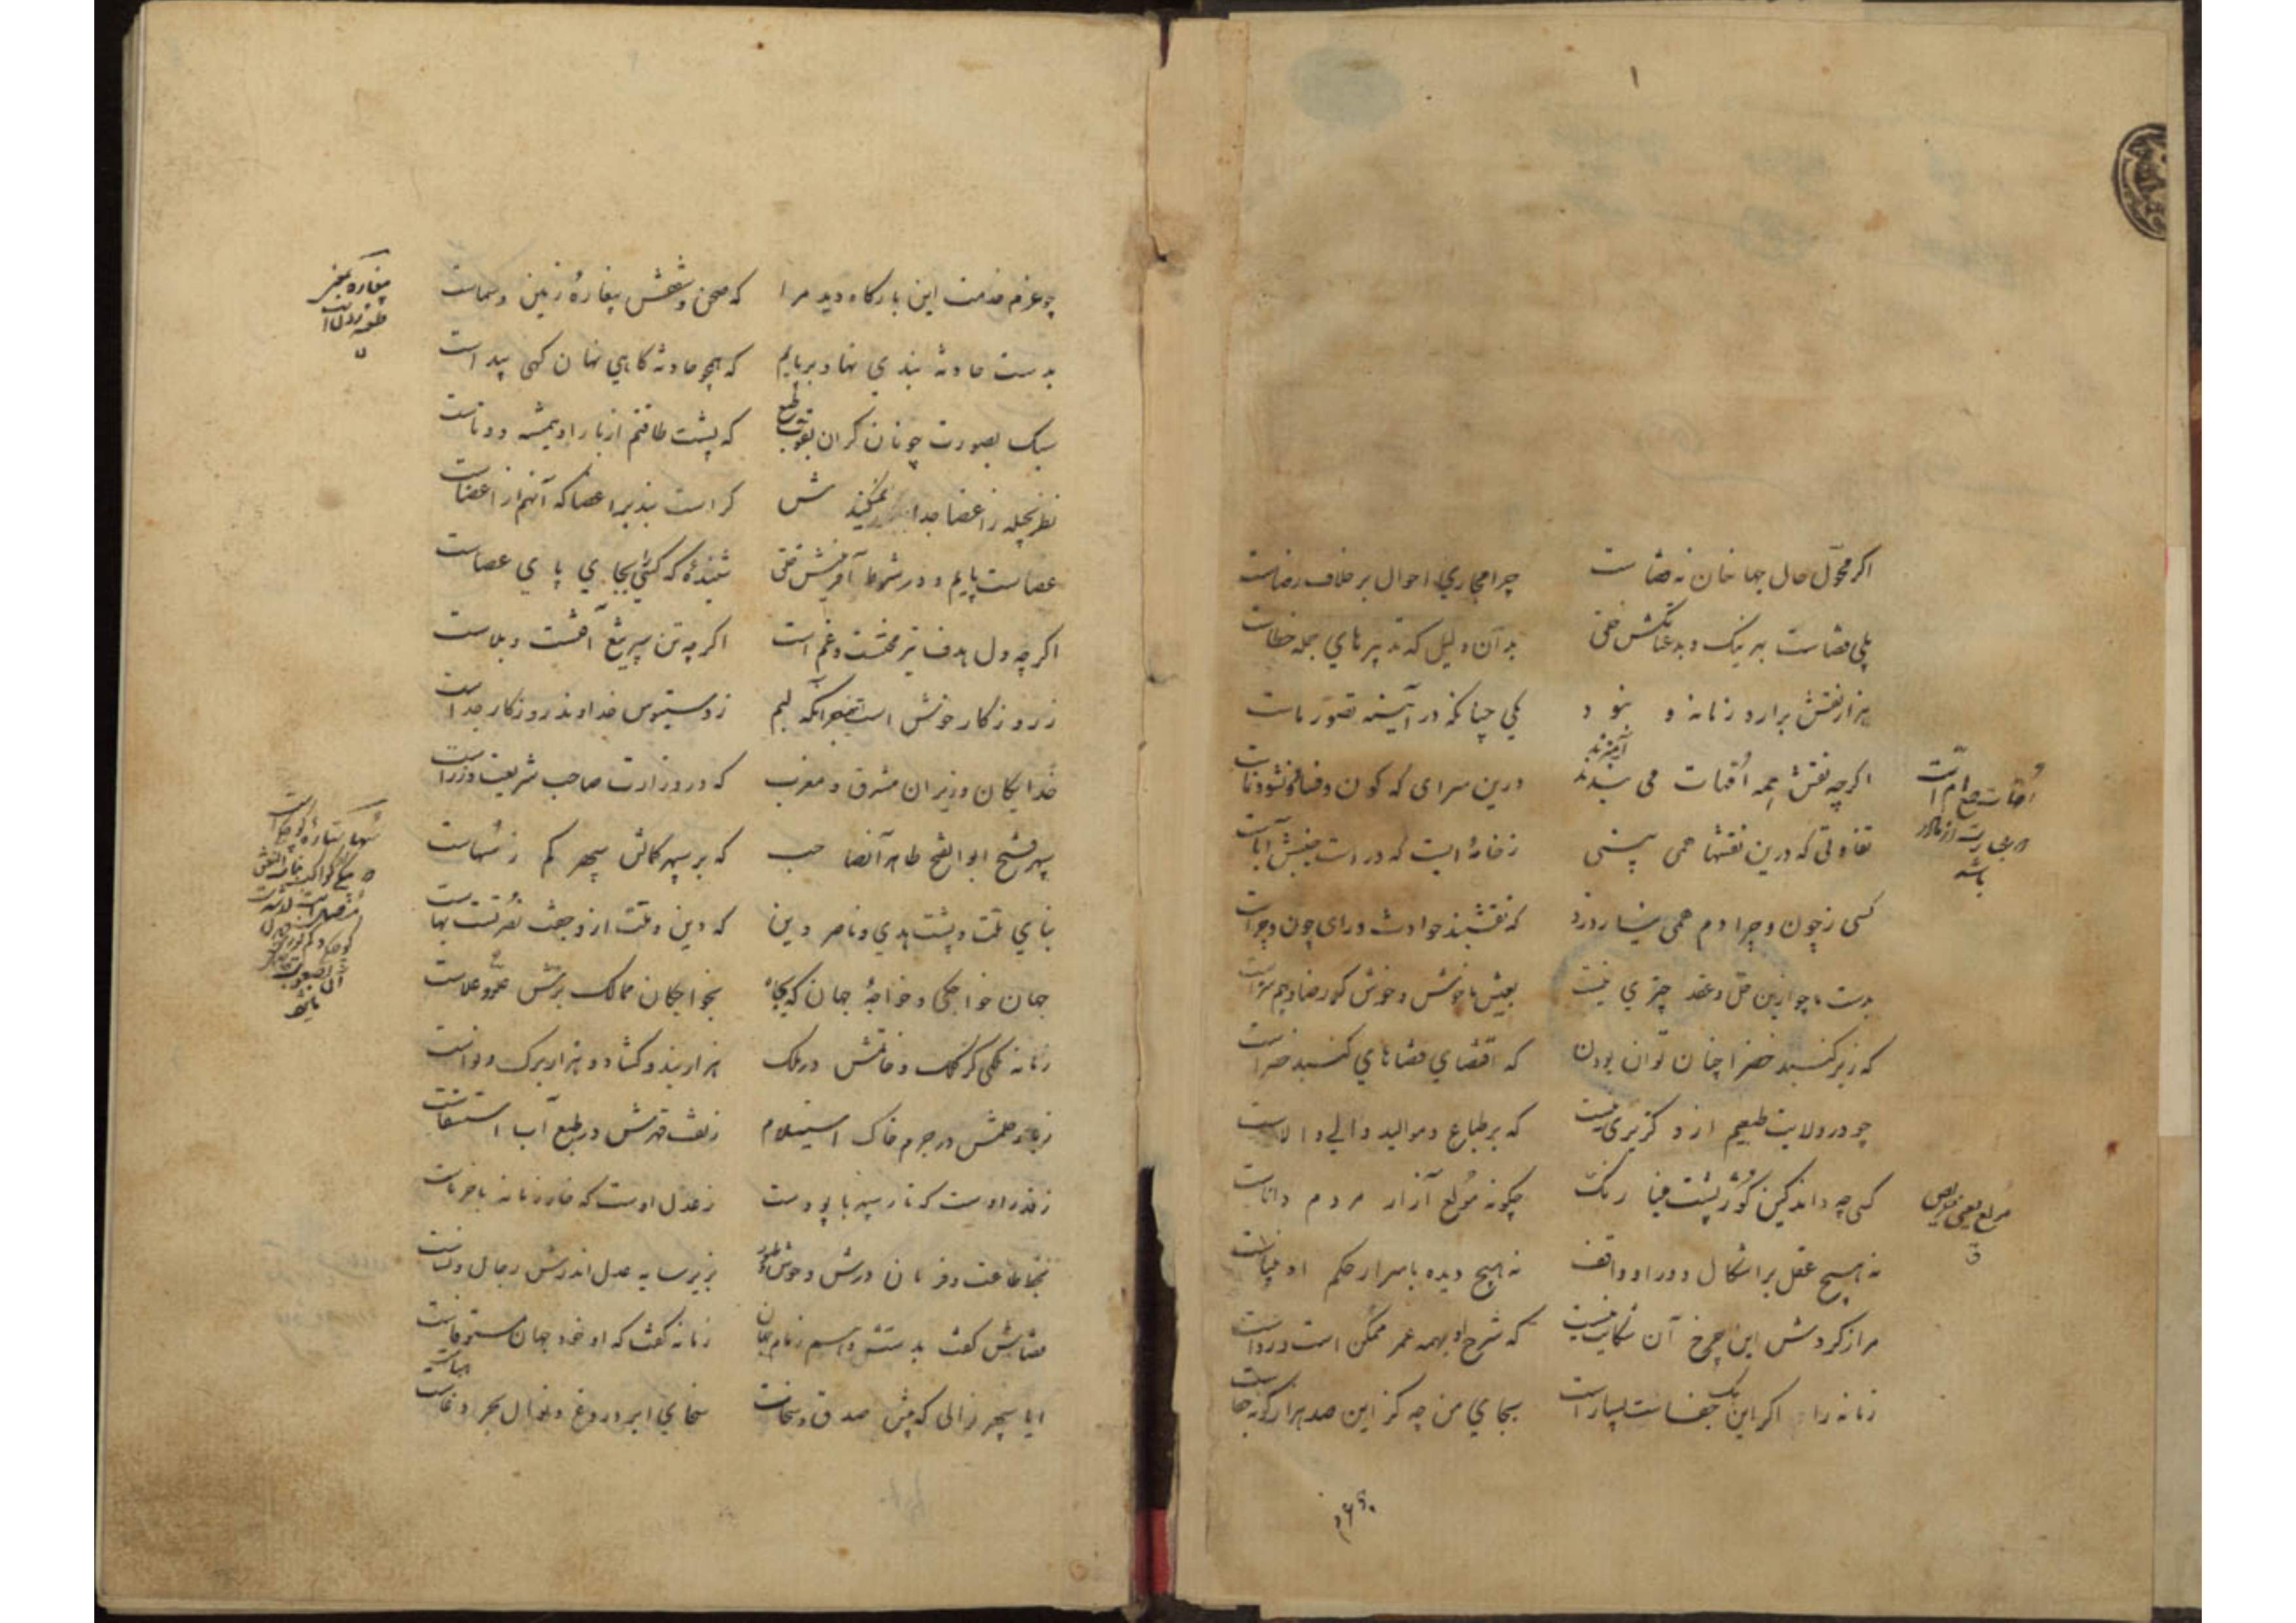 ۱
اگر محوّل حال جهانیان نه قضاست چرا مجاری احوال بر خلاف رضاست
بلی قضاست بهر نیک و بد عنانکش خلق بدان دلیل که تدبیرهای جمله خطاست
هزار نقش برارد زمانه و نبود یکی چنانکه در آیینه تصوّر ماست
اگرچه نقش همه اُمّهات می بندند درین سرای که کون و فساد و نشو و نماست
آمیزند
تفاوتی که درین نقشها همی بینی ز خامهٔ ایست که در دست جنبش آباست
کسی ز چون و چرا دم همی نیارد زد که نقشبند حوادث ورای چون و چراست
بدست ما چو ازین حل و عقد چیزی نیست بعیش ناخوش و خوش گر رضا دهیم سزاست
که زیر گنبد خضرا چنان توان بودن که اقتضای قضاهای گنبد خضراست
چو در ولایت طبعیم ازو گزیری نیست که بر طباع و موالید والی والاست
کسی چه داند کین کوژپشت مینا رنگ چگونه مُولع آزار مردم داناست
نه هیچ عقل بر اشکال دور او واقف نه هیچ دیده باسرار حکم او بیناست
مرا ز گردش این چرخ آن شکایت نیست که شرح او بهمه عمر ممکن است و رواست
زمانه را اگر این یک جفاست بسیار است بجای من چه کز این صد هزار گونه جفاست
باشد
مولع یعنی حریص
چو عزم خدمت این بارگاه دید مرا که صحن و سقفش بیغارهٔ زمین و سماست
بدست حادثه بندی نهاد بر پایم که همچو حادثه گاهی نهان گهی پیداست
سبک بصورت چونان گران بقوت طبع که پشت طاقتم از بار او همیشه دوتاست
نظر بحیله ز اعضا جدا نمی کندش کراست بند بر اعضا که آنهم از اعضاست
عصاست پایم و در شرط آفرینش خلق شنیدهٔ که کسی را بجای پای عصاست
اگرچه دل هدف تیر محنت و غم است اگرچه تن سپر تیغ آفت و بلاست
ز روزگار خوش است بجز آنکه لبم ز دستبوس خداوند روزگار جداست
خدایگان وزیران مشرق و مغرب که در وزارت صاحب شریعت وزراست
سپهر فتح ابوالفتح طاهر آنصاحب که بر سپهر کمالش سپهر کم ز سُهاست
بنای ملت و پشت هدی و ناصر دین که دین و ملت ازو جفت نصرت است بهاست
جهان خواجگی و خواجهٔ جهان که بجاه بخواجگان ممالک برش علو و علاست
زمانه ملکی کز کلک و خاتمش در ملک هزار بند و گشاد و هزار برگ و نواست
ز باد حلمش در جرم خاک استیلام ز تف قهرش در طبع آب استسقاست
ز قدر اوست که تار سپهر با پودست ز عدل اوست که خار زمانه با خرماست
بتحت طاعت و فرمان درش وحوش و طیور بزیر سایه عدل اندرش رجال و نساست
قضاش گفت بدستش دهیم زمام جهان زمانه گفت که او خود جهان مستوفاست
ایا سپهر نوالی که پیش صدق سخات سخای ابر دروغ و نوال بحر دغاست
ایماست
بیغاره بمعنی
طعنه زدن است
سُها ستاره کوچک است
باشد